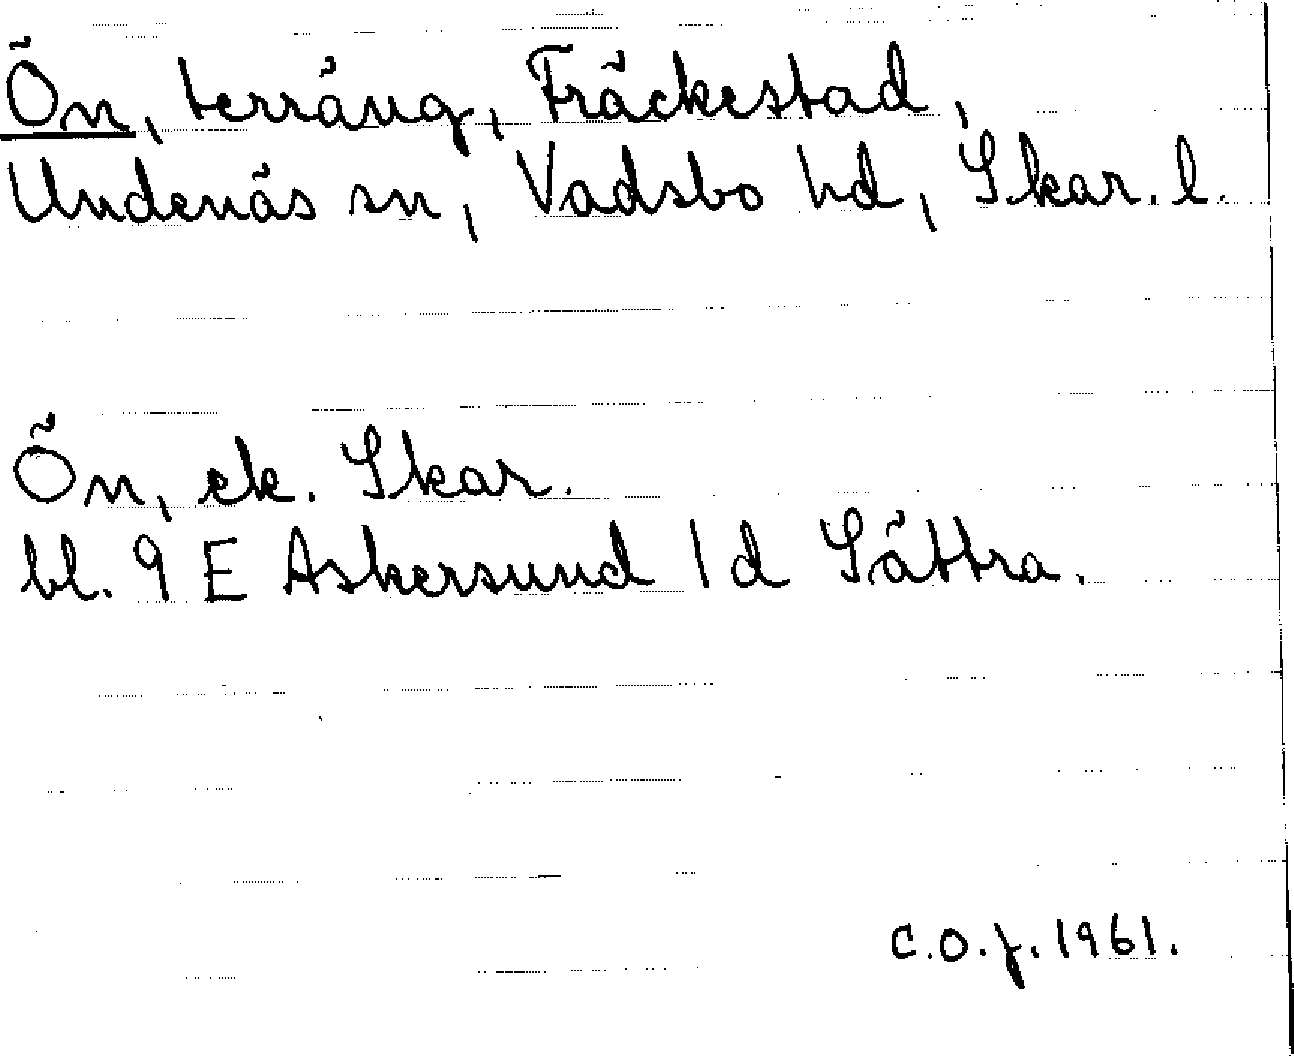 Ön, terräng, Fräckestad,
Undenäs sn, Vadsbo hd, Skar. l.
Ön, ek. Skar.
bl. 9 E Askersund 1 d Sättra.
C.O.J. 1961.